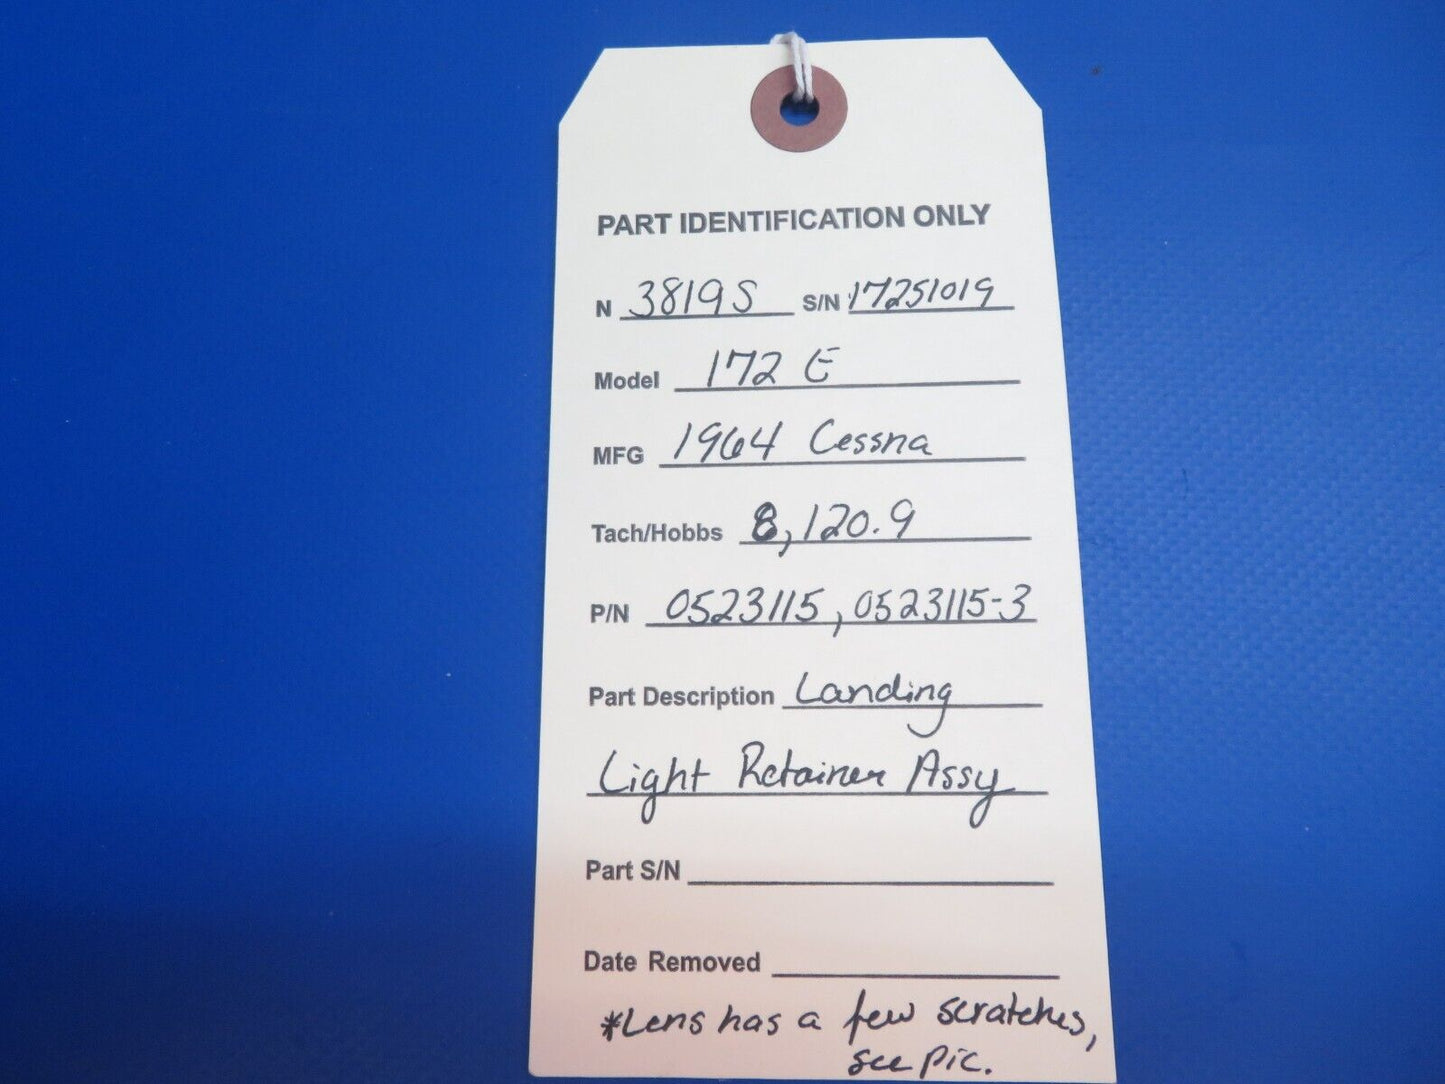 PART IDENTIFICATION ONLY
N 3819S S/N 17251019
Model 172 E
MFG 1964 Cessna
Tach/Hobbs 8,120.9
P/N 0523115, 0523115-3
Part Description Landing
Light Retainer Assy
Part S/N
Date Removed
*Lens has a few scratches,
see pic.